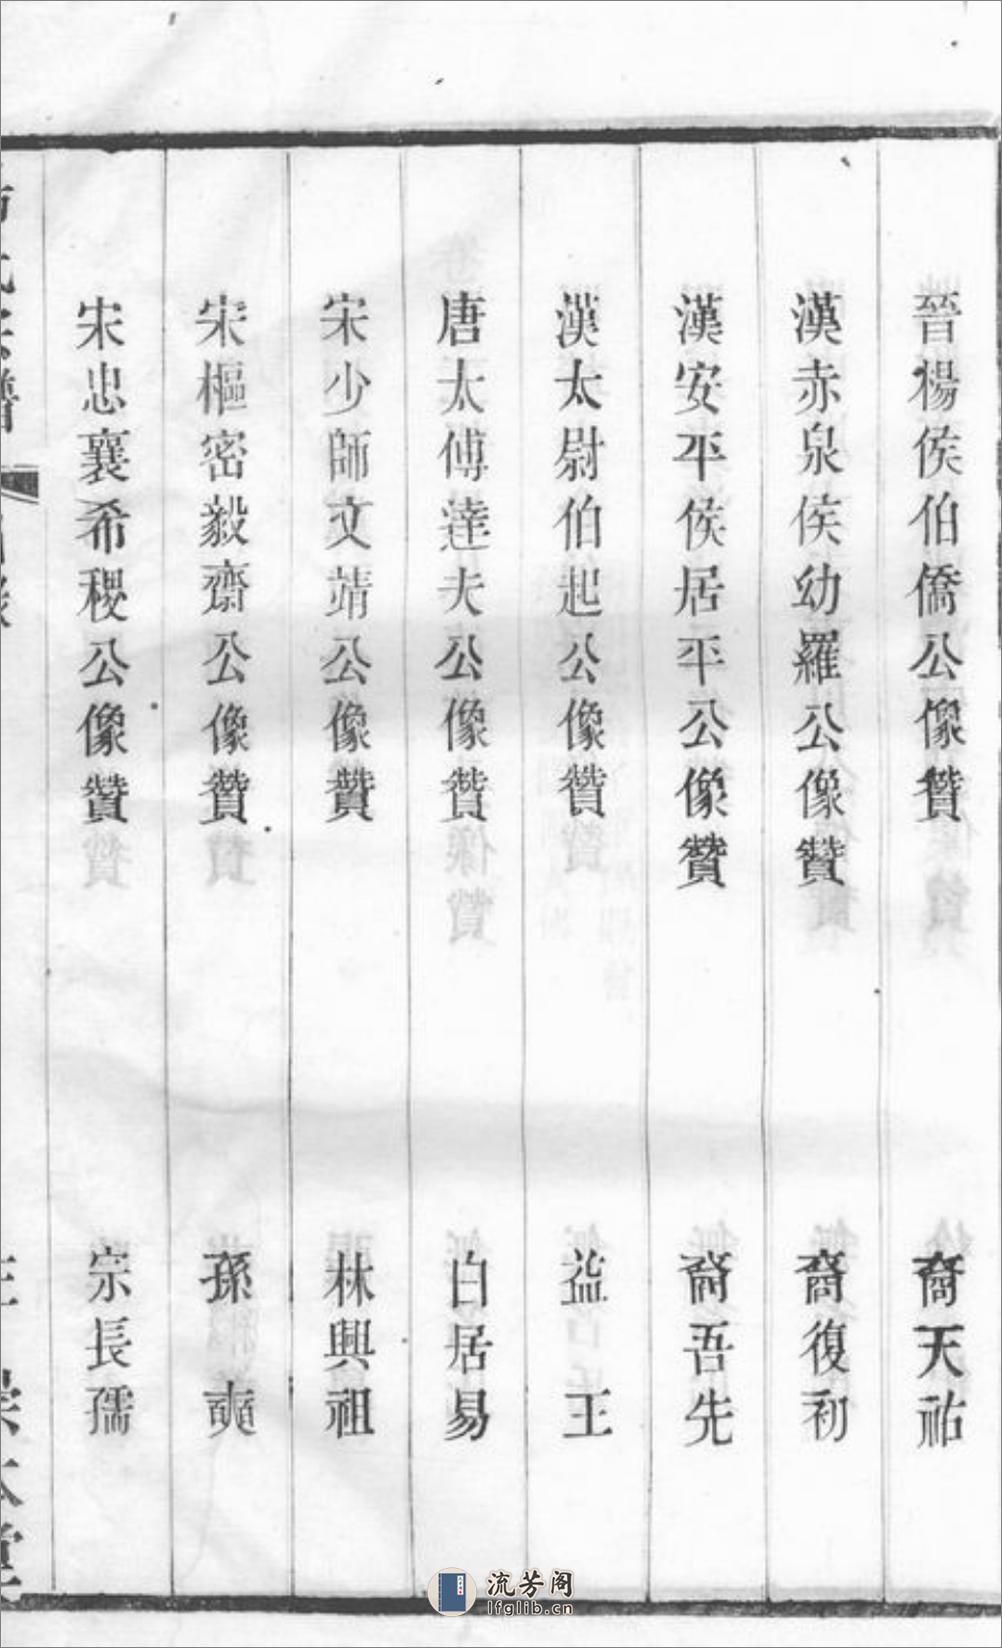 晉楊侯伯僑公像贊 裔天祐
漢赤泉侯幼羅公像贊 裔復初
漢安平侯居平公像贊 裔吾先
漢太尉伯起公像贊 益王
唐太傅達夫公像贊 白居易
宋少師文靖公像贊 林興祖
宋樞密毅齋公像贊 孫奭
宋忠襄希稷公像贊 宗長孺
流芳阁
lfglib.cn